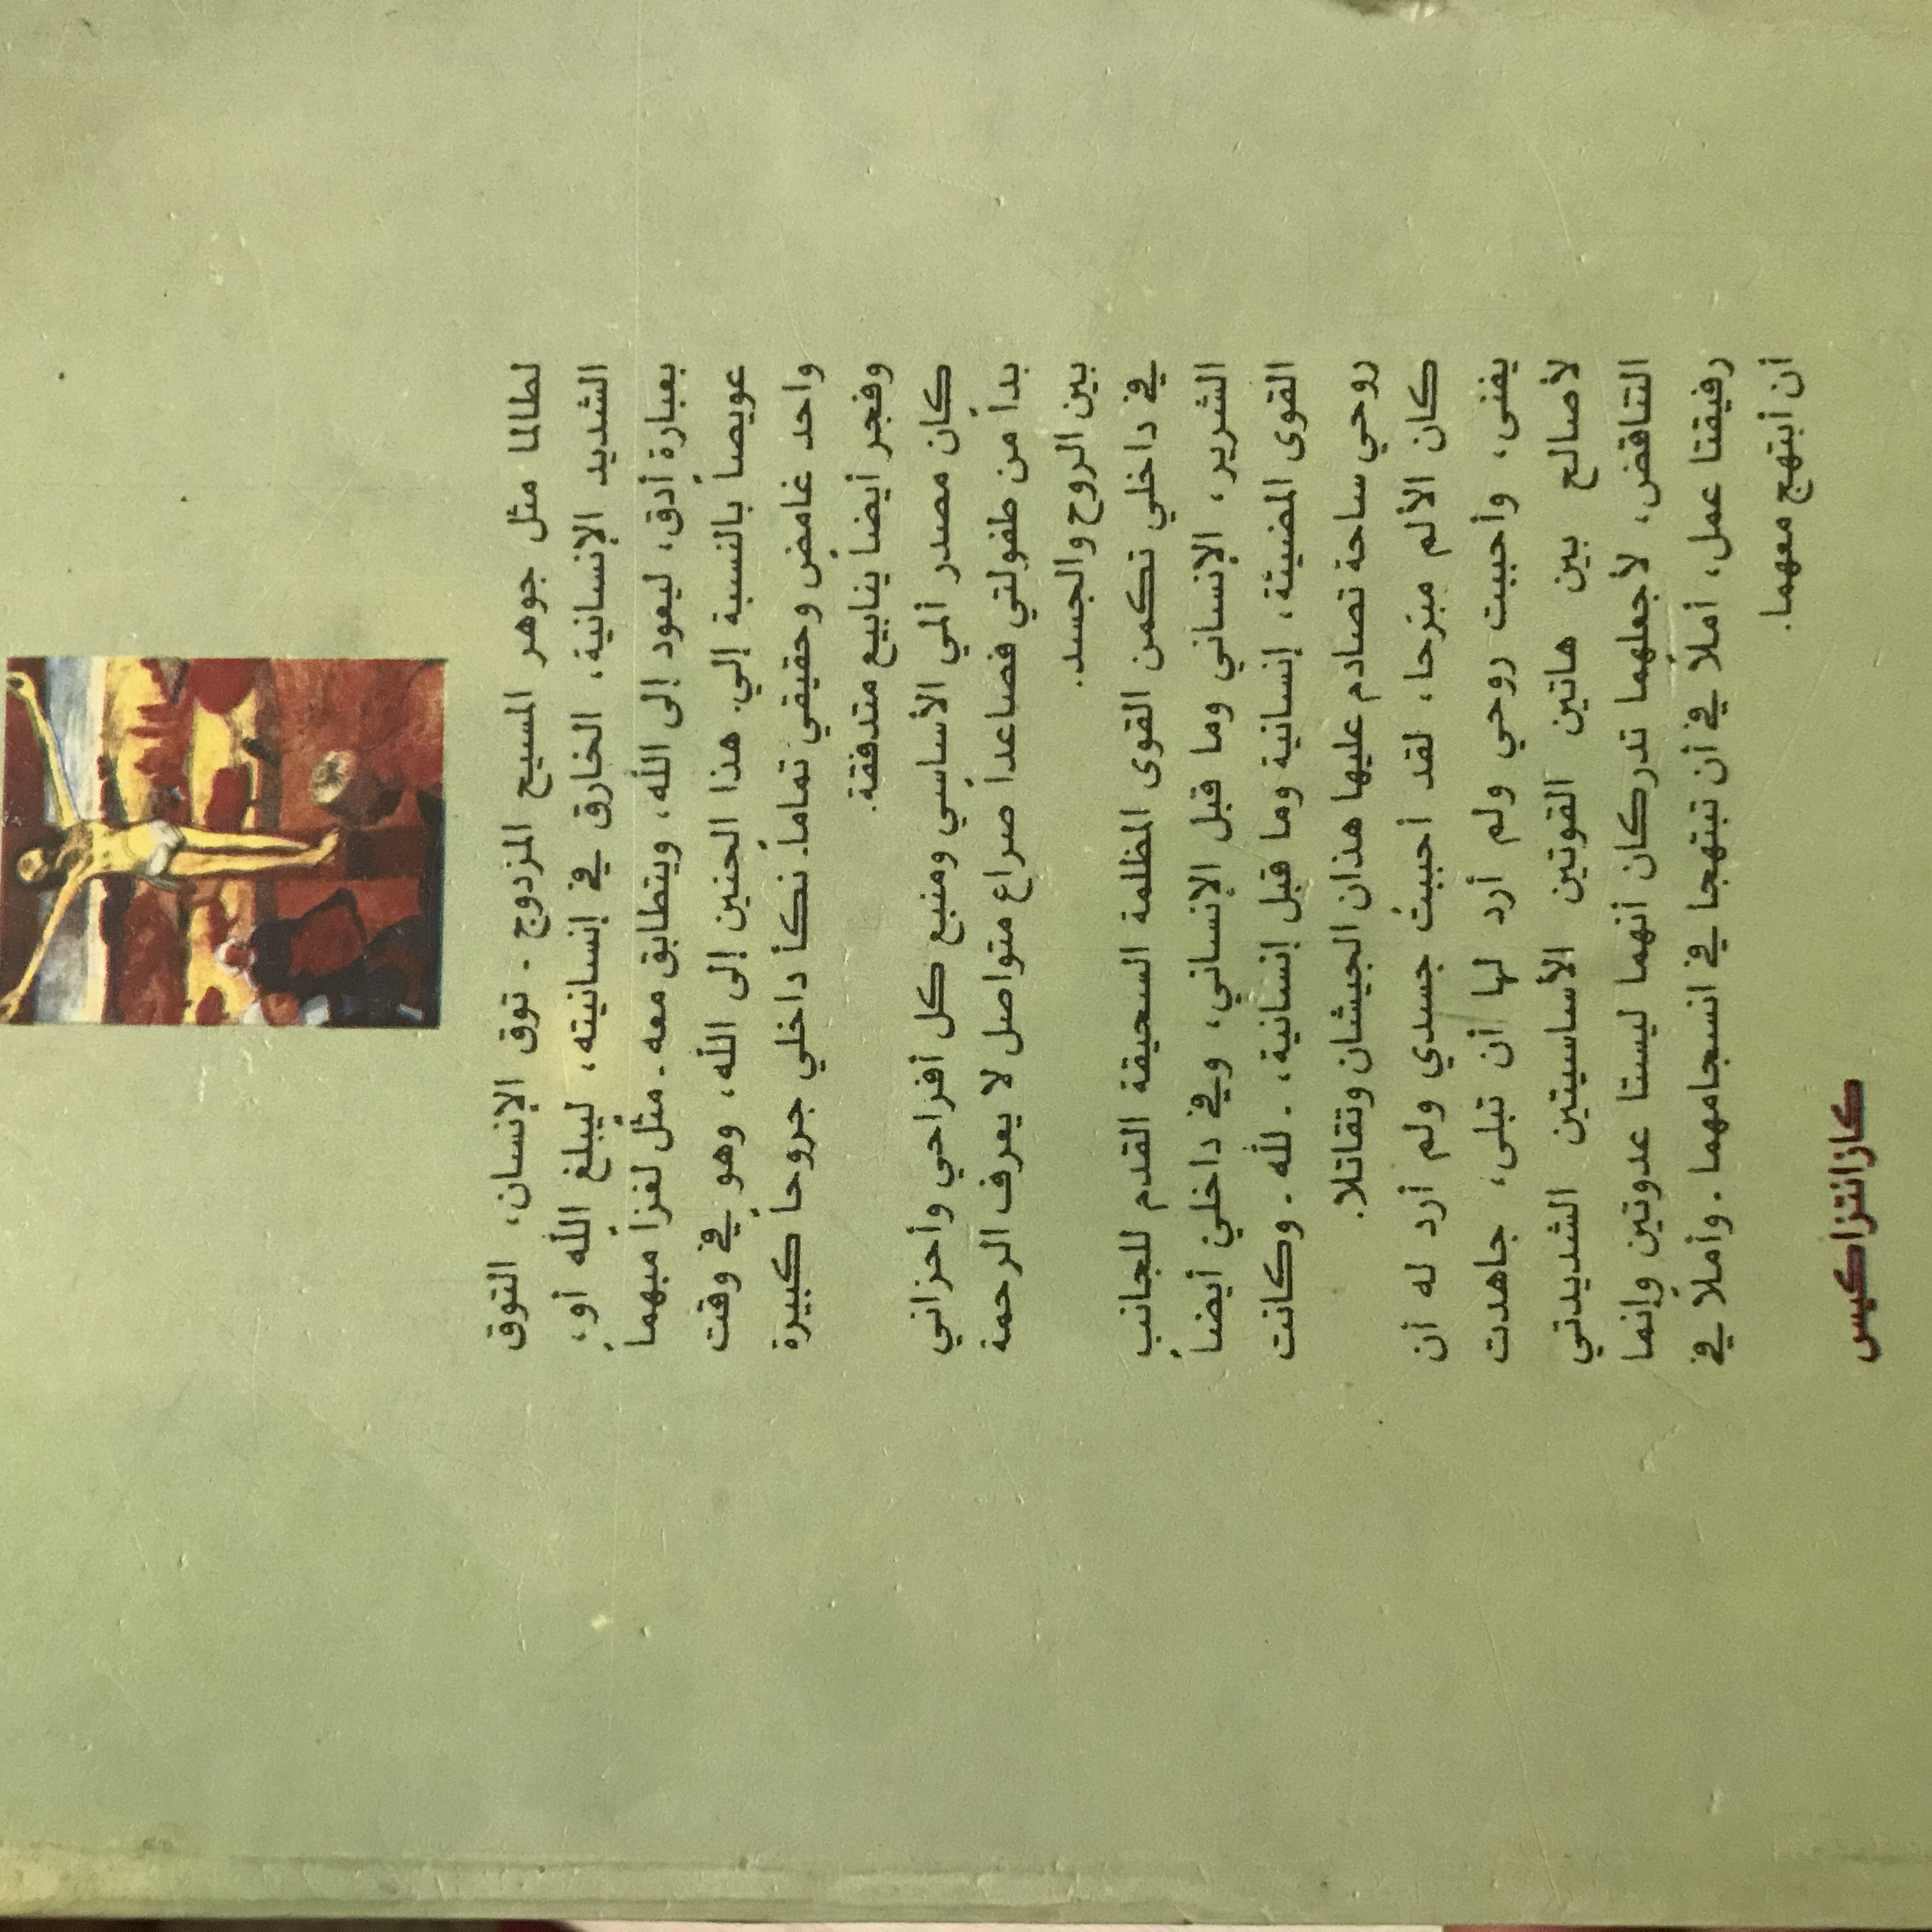 لطالما مثل جوهر المسيح المزدوج - توق الإنسان، التوق
الشديد الإنسانية، الخارق في إنسانيته، ليبلغ الله أو،
بعبارة أدق، ليعود إلى الله، ويتطابق معه - مثل لغزاً مبهماً
عويصاً بالنسبة إلي. هذا الحنين إلى الله، وهو في وقت
واحد غامض وحقيقي تماماً. نكأ داخلي جروحاً كبيرة
وفجر أيضاً ينابيع متدفقة.
كان مصدر ألمي الأساسي ومنبع كل أفراحي وأحزاني
بدأ من طفولتي فصاعداً صراع متواصل لا يعرف الرحمة
بين الروح والجسد.
في داخلي تكمن القوى المظلمة السحيقة القدم للجانب
الشرير، الإنساني وما قبل الإنساني، وفي داخلي أيضاً
القوى المضيئة، إنسانية وما قبل إنسانية، - لله - وكانت
روحي ساحة تصادم عليها هذان الجيشان وتقاتلا.
كان الألم مبرحا، لقد أحببتُ جسدي ولم أرد له أن
يفنى، وأحببت روحي ولم أرد لها أن تبلى، جاهدت
لأصالح بين هاتين القوتين الأساسيتين الشديدتي
التناقض، لأجعلهما تدركان أنهما ليستا عدوتين وإنما
رفيقتا عمل، أملاً في أن تبتهجا في انسجامهما - وأملاً في
أن أبتهج معهما.
كازانتزاكيس